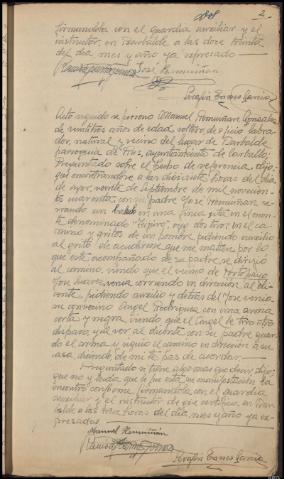 2
firmandola con el guardia auxiliar y el
instructor en Rentalde a las doce treinta
del dia mes y año ya expresado
José Remuiñan
Serafin Ramos Garcia
Acto seguido se presento Manuel Remuiñan Gonzalez
de veintitres años de edad, soltero, de oficio labra-
dor, natural y vecino del lugar de
parroquia de ayuntamiento de Carballo
Preguntado sobre el hecho de referencia, dijo:
que encontrandose a las diecisiete horas del dia
de ayer, veinte de Septiembre de mil novecien-
tos cuarenta con su padre José Remuiñan ce-
rrando un en una finca sita en el mon-
te denominado oyó dos tiros en el ca-
mino y gritos de un hombre pidiendo auxilio
al grito de acudirme que me matan, por lo
que este acompañado de su padre se dirigió
al camino, viendo que el vecino de
José Suarez venia corriendo en direccion al di-
cente, pidiendo auxilio y detras del José venia
su convecino Angel Rodriguez con una arma
corta y negra, viendo que el Angel le tiro otro
disparo y al ver al dicente con su padre guar-
do el arma y siguió el camino en direccion a su
casa diciendo de mi te has de acordar.
Preguntado si tiene algo mas que decir, dijo:
que no y leida que le fue esta su manifestacion la
encontro conforme firmandola con el guardia
auxiliar y el instructor de que certifico en
a las trece horas del dia, mes y año ya ex-
presados
Manuel Remuiñan
Serafin Ramos Garcia